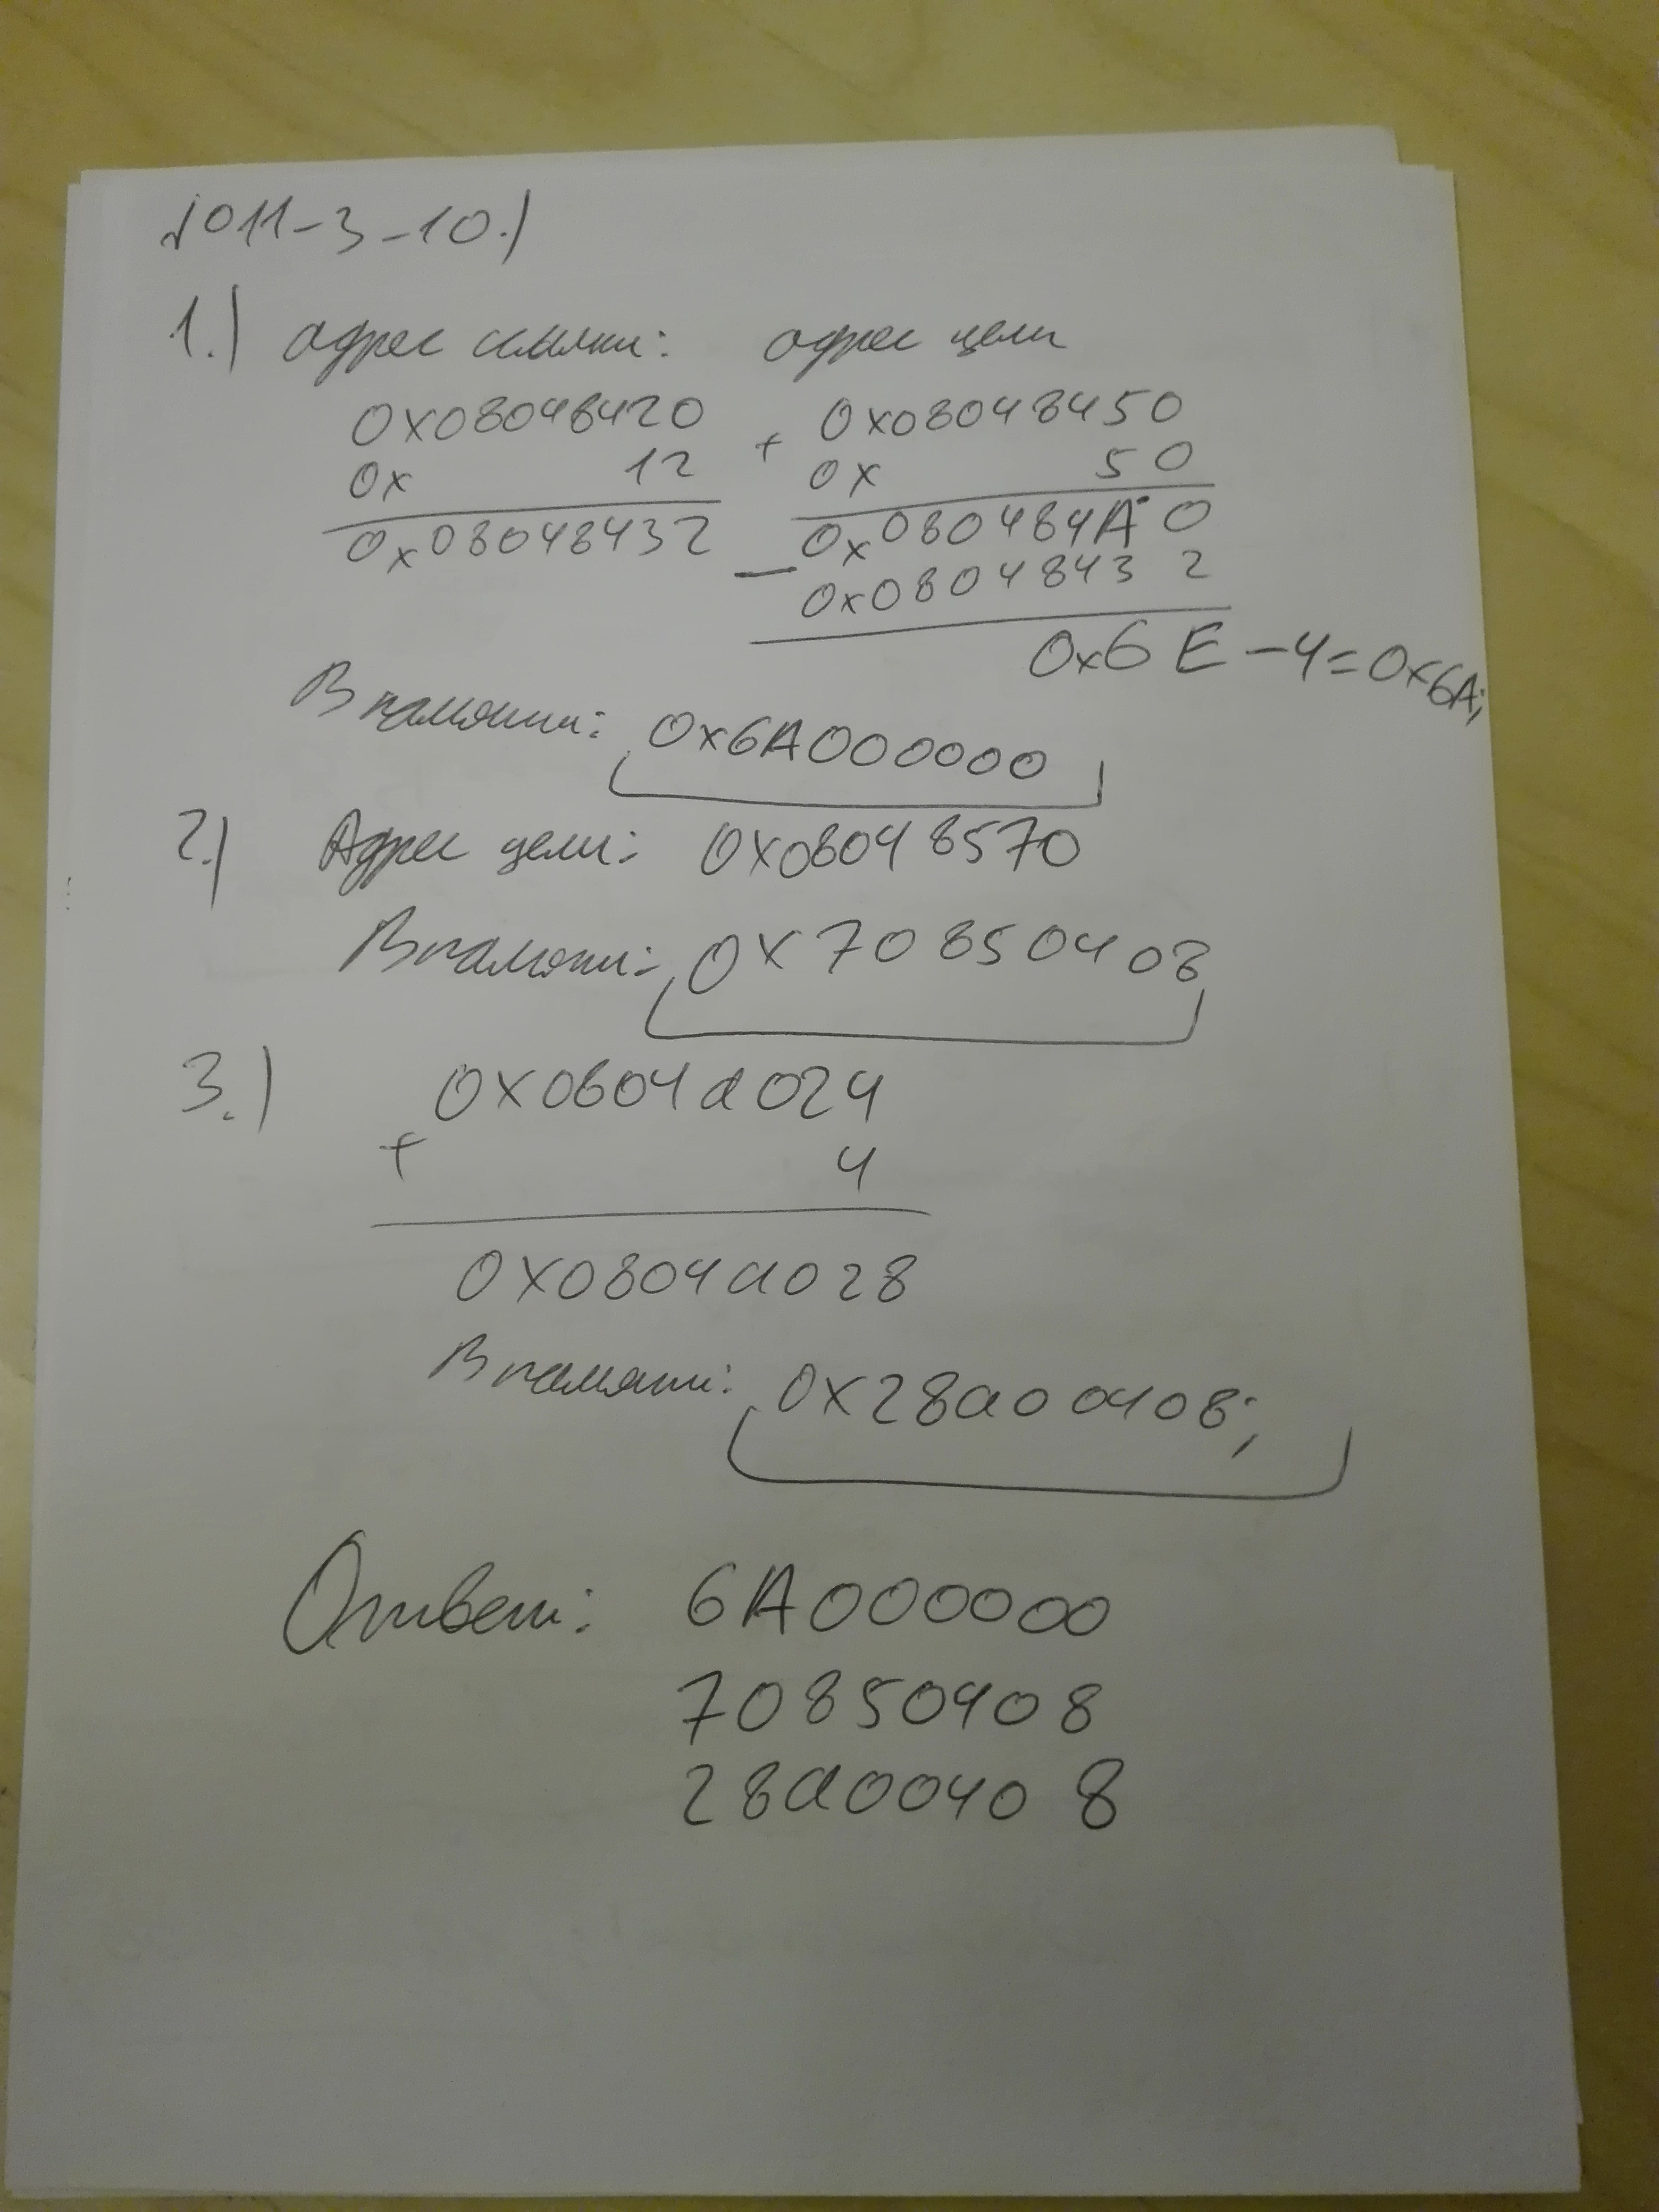 №011-3-10.)
1.) адрес ссылки: адрес цели
0x08048420 + 0x08048450
0x 12 0x 50
0x08048432 0x080484A0
— 0x08048432
0x6E-4=0x6A;
В памяти: 0x6A000000
2.) Адрес цели: 0x08048570
В памяти: 0x70850408
3.) 0x0804a024
+ 4
0x0804a028
В памяти: 0x28a00408;
Ответ: 6A000000
70850408
28a00408